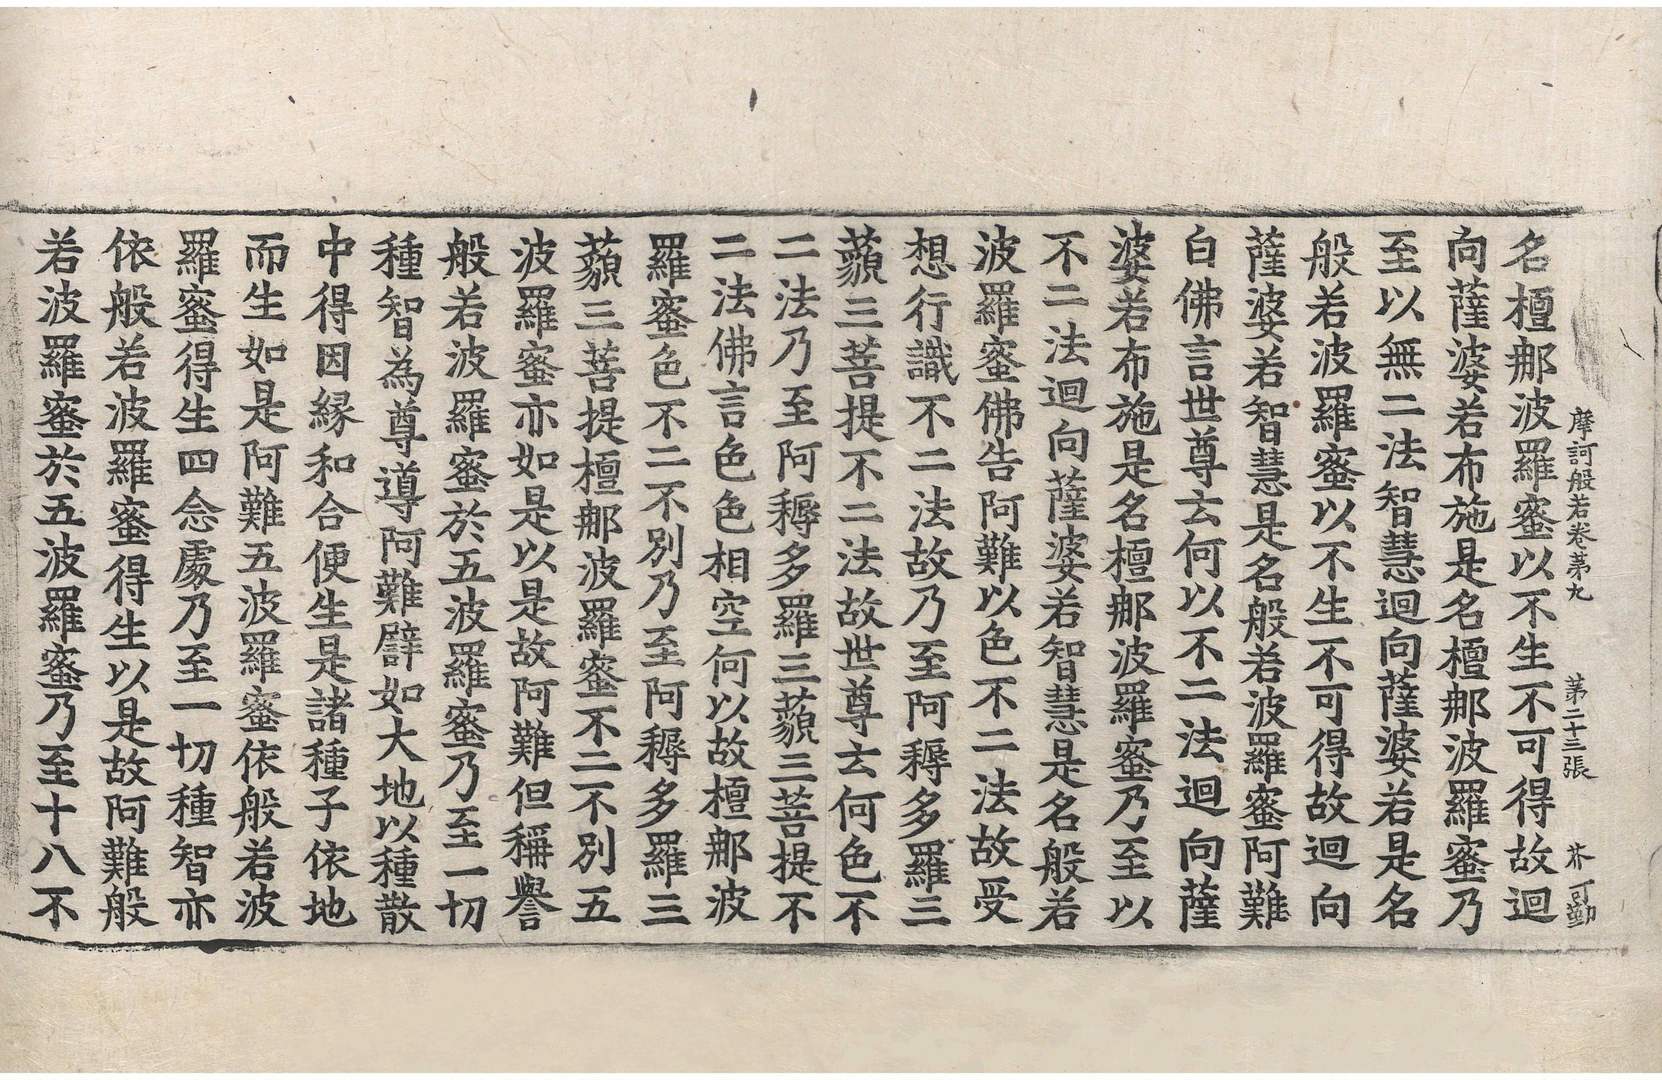 摩訶般若卷苐九 第二十三張 芥 丁勤
名檀那波羅蜜以不生不可得故迴
向薩婆若布施是名檀那波羅蜜乃
至以無二法智慧迴向薩婆若是名
般若波羅蜜以不生不可得故迴向
薩婆若智慧是名般若波羅蜜阿難
白佛言世尊云何以不二法迴向薩
婆若布施是名檀那波羅蜜乃至以
不二法迴向薩婆若智慧是名般若
波羅蜜佛告阿難以色不二法故受
想行識不二法故乃至阿耨多羅三
藐三菩提不二法故世尊云何色不
二法乃至阿耨多羅三藐三菩提不
二法佛言色色相空何以故檀那波
羅蜜色不二不別乃至阿耨多羅三
藐三菩提檀那波羅蜜不二不別五
波羅蜜亦如是以是故阿難但稱譽
般若波羅蜜於五波羅蜜乃至一切
種智為尊導阿難譬如大地以種散
中得因緣和合便生是諸種子依地
而生如是阿難五波羅蜜依般若波
羅蜜得生四念處乃至一切種智亦
依般若波羅蜜得生以是故阿難般
若波羅蜜於五波羅蜜乃至十八不